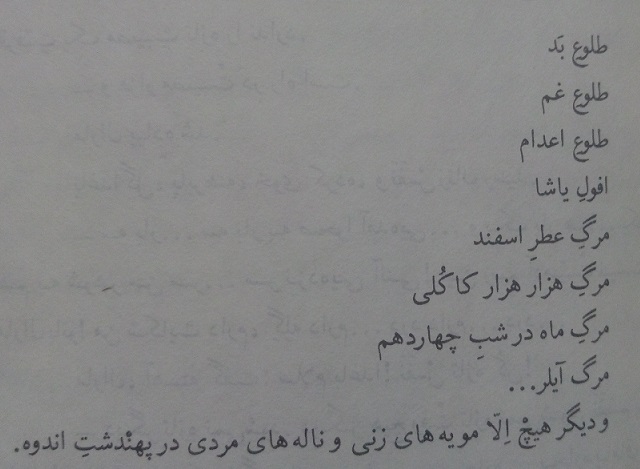 طلوعِ بَد
طلوعِ غم
طلوعِ اعدام
افولِ یاشا
مرگِ عطرِ اسفند
مرگِ هزار هزار کاکُلی
مرگِ ماه در شبِ چهاردهم
مرگ آیلر...
و دیگر هیچْ اِلّا مویه‌های زنی و ناله‌های مردی در پهنْدشتِ اندوه.